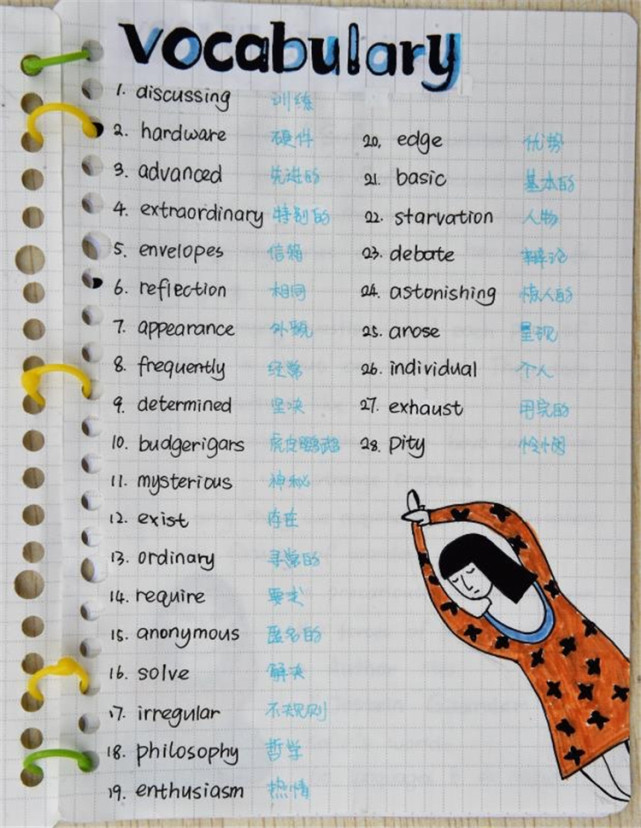 vocabulary
1. discussing 训练
2. hardware 硬件
3. advanced 先进的
4. extraordinary 特别的
5. envelopes 信箱
6. reflection 相同
7. appearance 外貌
8. frequently 经常
9. determined 坚决
10. budgerigars 虎皮鹦鹉
11. mysterious 神秘
12. exist 存在
13. ordinary 寻常的
14. require 要求
15. anonymous 匿名的
16. solve 解决
17. irregular 不规则
18. philosophy 哲学
19. enthusiasm 热情
20. edge 优势
21. basic 基本的
22. starvation 人物
23. debate 辩论
24. astonishing 惊人的
25. arose 呈现
26. individual 个人
27. exhaust 用完的
28. pity 怜悯